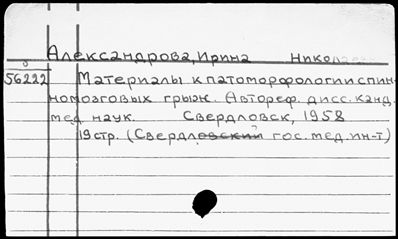 Александрова, Ирина
56222 Материалы к патоморфологии спин-
номозговых грыж. Автореф. дисс. канд.
мед. наук. Свердловск, 1958
19 стр. (Свердловский гос. мед. ин-т)